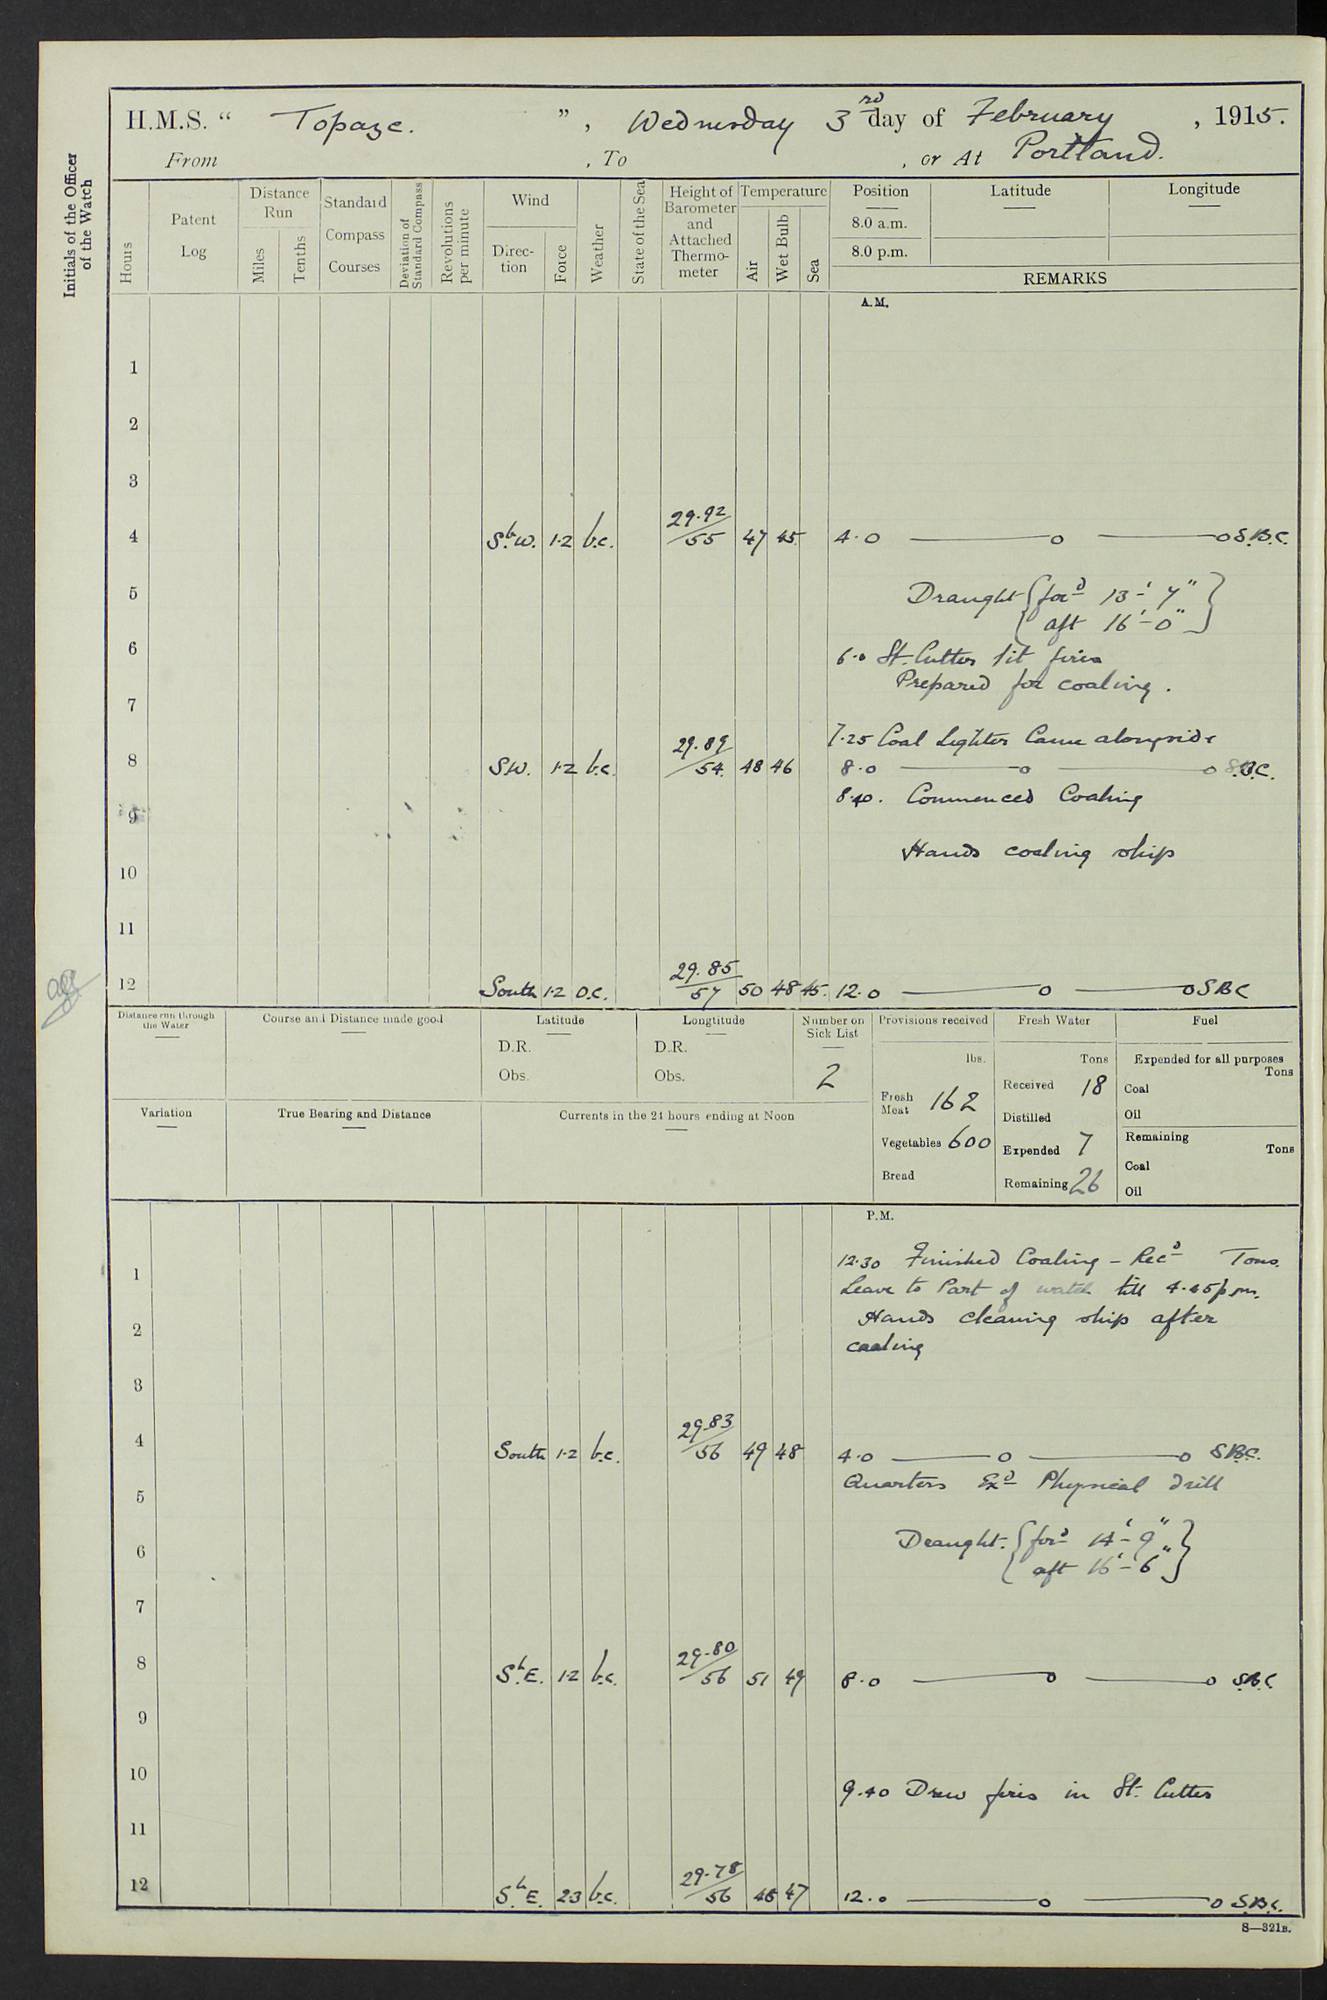 H.M.S. “ Topaze. ” , Wednesday 3rd day of February , 1915.
From , To , or At Portland.
Initials of the Officer of the Watch
Hours
Patent Log
Distance Run
Miles
Tenths
Standard Compass Courses
Deviation of Standard Compass
Revolutions per minute
Wind
Direc-tion
Force
Weather
State of the Sea
Height of Barometer and Attached Thermo-meter
Temperature
Air
Wet Bulb
Sea
Position
8.0 a.m.
8.0 p.m.
Latitude
Longitude
REMARKS
A.M.
1
2
3
4 SbW. 1·2 b.c. 29·92/55 47 45 4·0 —o —o S.B.C.
5 Draught { for'd 13'-7"
aft 16'-0" }
6
6·0 St. Cutter lit fires
Prepared for coaling.
7
7·25 Coal Lighter Came alongside
8 SW. 1·2 b.c. 29·89/54 48 46 8·0 —o —o S.B.C.
8·40. Commenced Coaling
9
Hands coaling ship
10
11
12 South 1·2 O.C. 29.85/57 50 48 45 12·0 —o —o SBC
Distance run through the Water
Course and Distance made good
Latitude
D.R.
Obs.
Longtitude
D.R.
Obs.
Number on Sick List
2
Provisions received
lbs.
Fresh Meat 162
Vegetables 600
Bread
Fresh Water
Tons
Received 18
Distilled
Expended 7
Remaining 26
Fuel
Expended for all purposes
Tons
Coal
Oil
Remaining
Tons
Coal
Oil
Variation
True Bearing and Distance
Currents in the 24 hours ending at Noon
P.M.
12·30 Finished Coaling – Rec'd Tons.
1
Leave to Part of watch till 4·45 p.m.
2 Hands cleaning ship after
coaling
3
4 South 1·2 b.c. 29·83/56 49 48 4·0 —o —o S.B.C.
Quarters Ex'd Physical Drill
5
6 Draught. { for'd 14'-9"
aft 16'-6" }
7
8 SbE. 1·2 b.c. 29·80/56 51 49 8·0 —o —o S.B.C
9
10 9·40 Drew fires in St. Cutter
11
12 SbE. 23 b.c. 29·78/56 48 47 12·0 —o —o S.B.C.
S—321B.